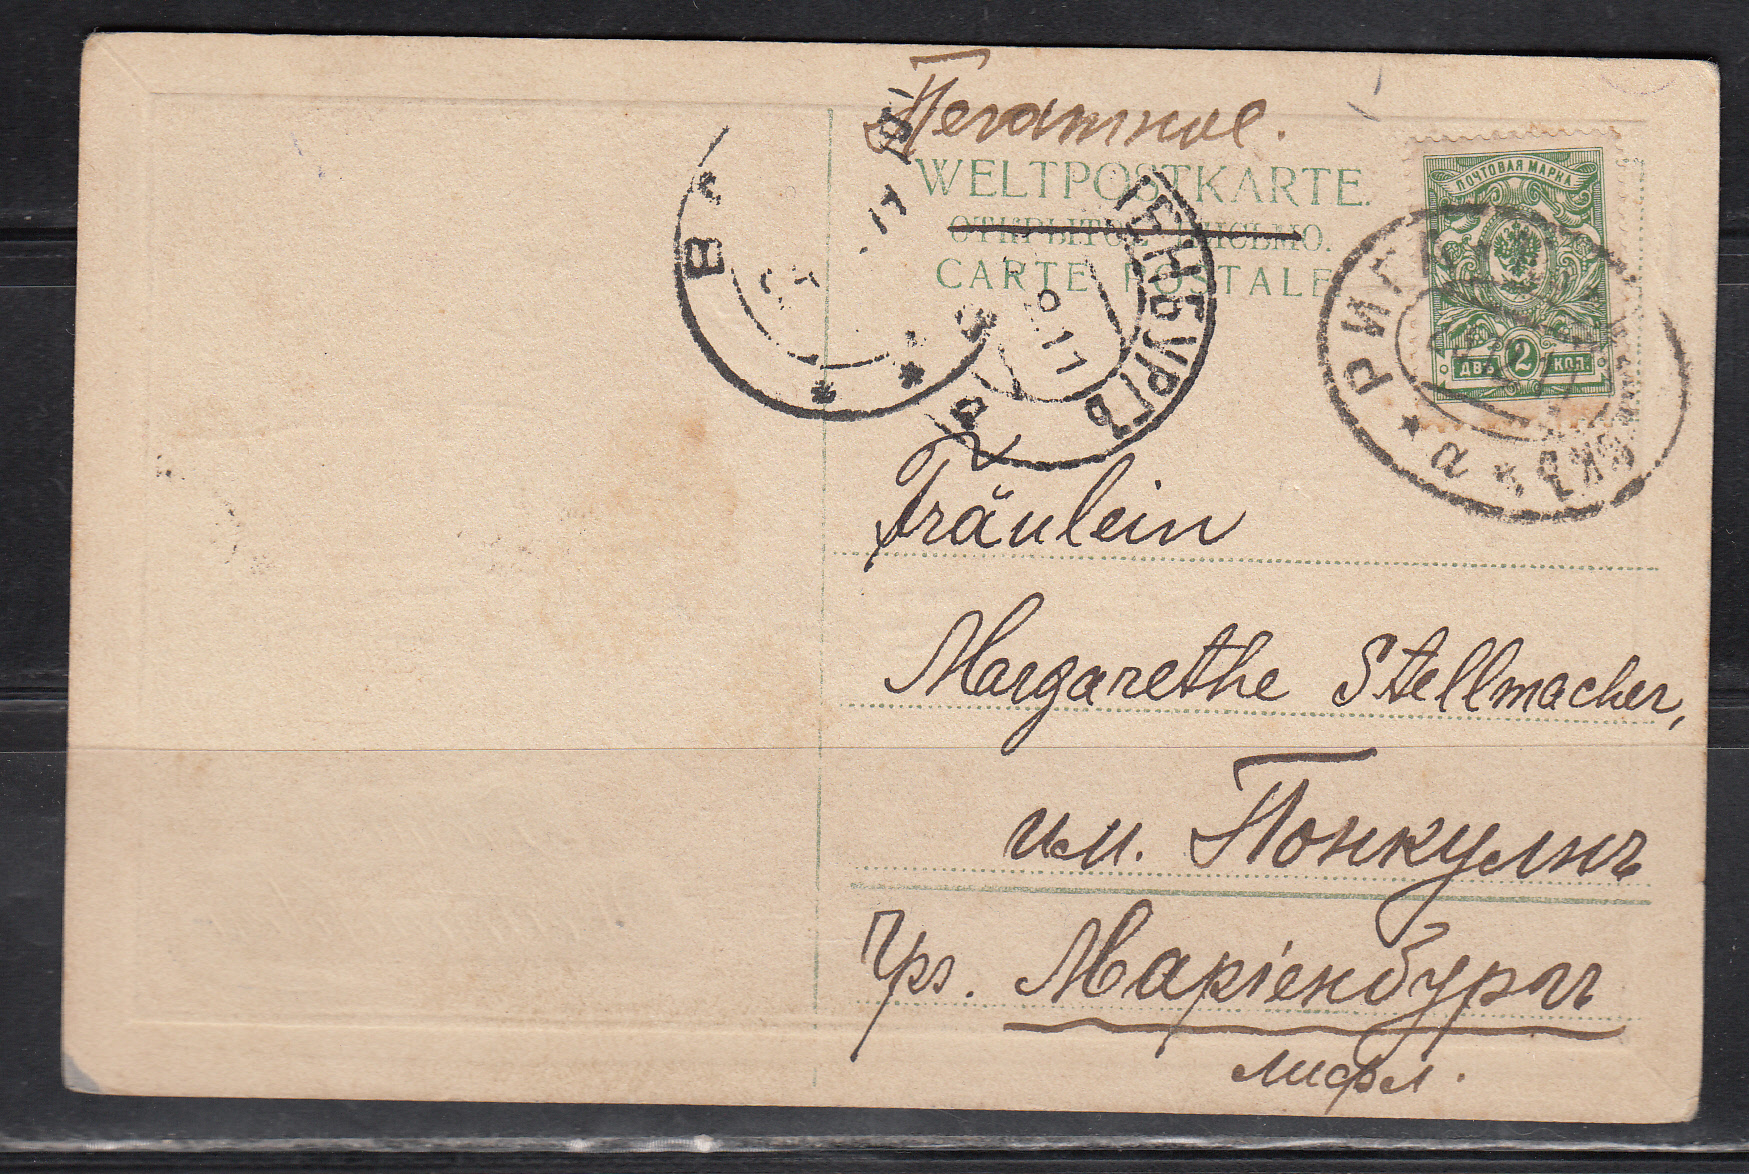 Печатное.
WELTPOSTKARTE.
ОТКРЫТОЕ ПИСЬМО.
CARTE POSTALE
ПОЧТОВАЯ МАРКА
ДВѢ 2 КОП.
РИГА
ЕНБУРГЪ
Fräulein
Margarethe Stellmacher,
им. Понкульнъ
чрз. Маріенбургъ
лифл.